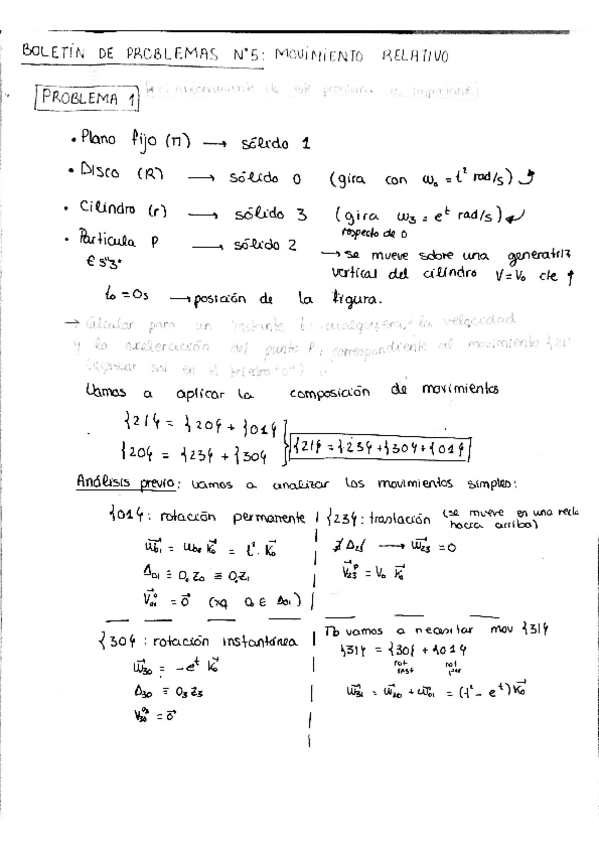 BOLETÍN DE PROBLEMAS Nº5: MOVIMIENTO RELATIVO
PROBLEMA 1
• Plano fijo (π) → sólido 1
• Disco (R) → sólido 0 (gira con ω₀ = t² rad/s)
• Cilindro (r) → sólido 3 (gira ω₃ = eᵗ rad/s)
respecto de 0
• Partícula P → sólido 2 → se mueve sobre una generatriz
vertical del cilindro V=V₀ cte ↑
t₀ = 0s → posición de la figura.
→ Calcular para un instante t cualquiera, la velocidad
y la aceleración del punto P, correspondiente al movimiento {21}
Vamos a aplicar la composición de movimientos
{21} = {20} + {01}
{20} = {23} + {30}
{21} = {23} + {30} + {01}
Análisis previo: vamos a analizar los movimientos simples:
{01}: rotación permanente
ω₀₁ = ω₀ₑ K₀ = t² · K₀
Δ₀₁ ≡ O₀Z₀ ≡ O₁Z₁
{23}: traslación (se mueve en una recta
hacia arriba)
∄ Δ₂₃ → ω₂₃ = 0
V₂₃ᴾ = V₀ K₀
{30}: rotación instantánea
ω₃₀ = -eᵗ K₀
Δ₃₀ ≡ O₃Z₃
V₃₀ᴼ³ = 0
Tb vamos a necesitar mov {31}
{31} = {30} + {01}
ω₃₁ = ω₃₀ + ω₀₁ = (t² - eᵗ) K₀